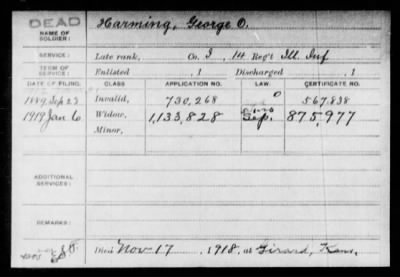 DEAD
NAME OF SOLDIER:
Harming, George O.
SERVICE:
Late rank, Co. I, 14 Reg't Ill. Inf
TERM OF SERVICE:
Enlisted , 1 Discharged , 1
DATE OF FILING. CLASS. APPLICATION NO. LAW. CERTIFICATE NO.
1889 Sep 23 Invalid, 730,268 567,838
1919 Jan 6 Widow, 1,133,828 Sep. 875,977
Minor,
ADDITIONAL SERVICES:
REMARKS:
Died Nov-17 , 1918, at Girard, Kans.